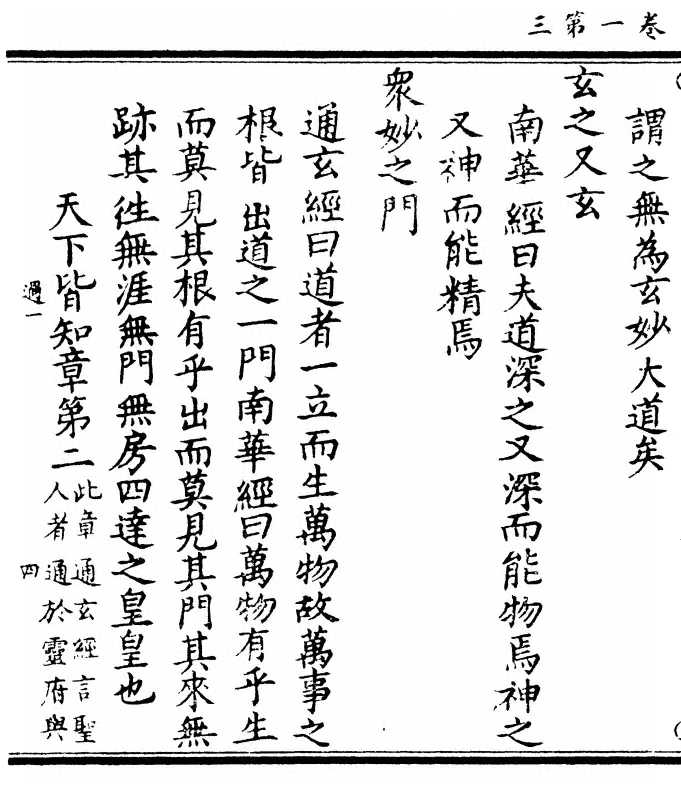 三第一卷
謂之無為玄妙大道矣
玄之又玄
南華經曰夫道深之又深而能物焉神之
又神而能精焉
衆妙之門
通玄經曰道者一立而生萬物故萬事之
根皆出道之一門南華經曰萬物有乎生
而莫見其根有乎出而莫見其門其來無
跡其徃無涯無門無房四達之皇皇也
天下皆知章第二
此章通玄經言聖
人者通於靈府與
過一
四